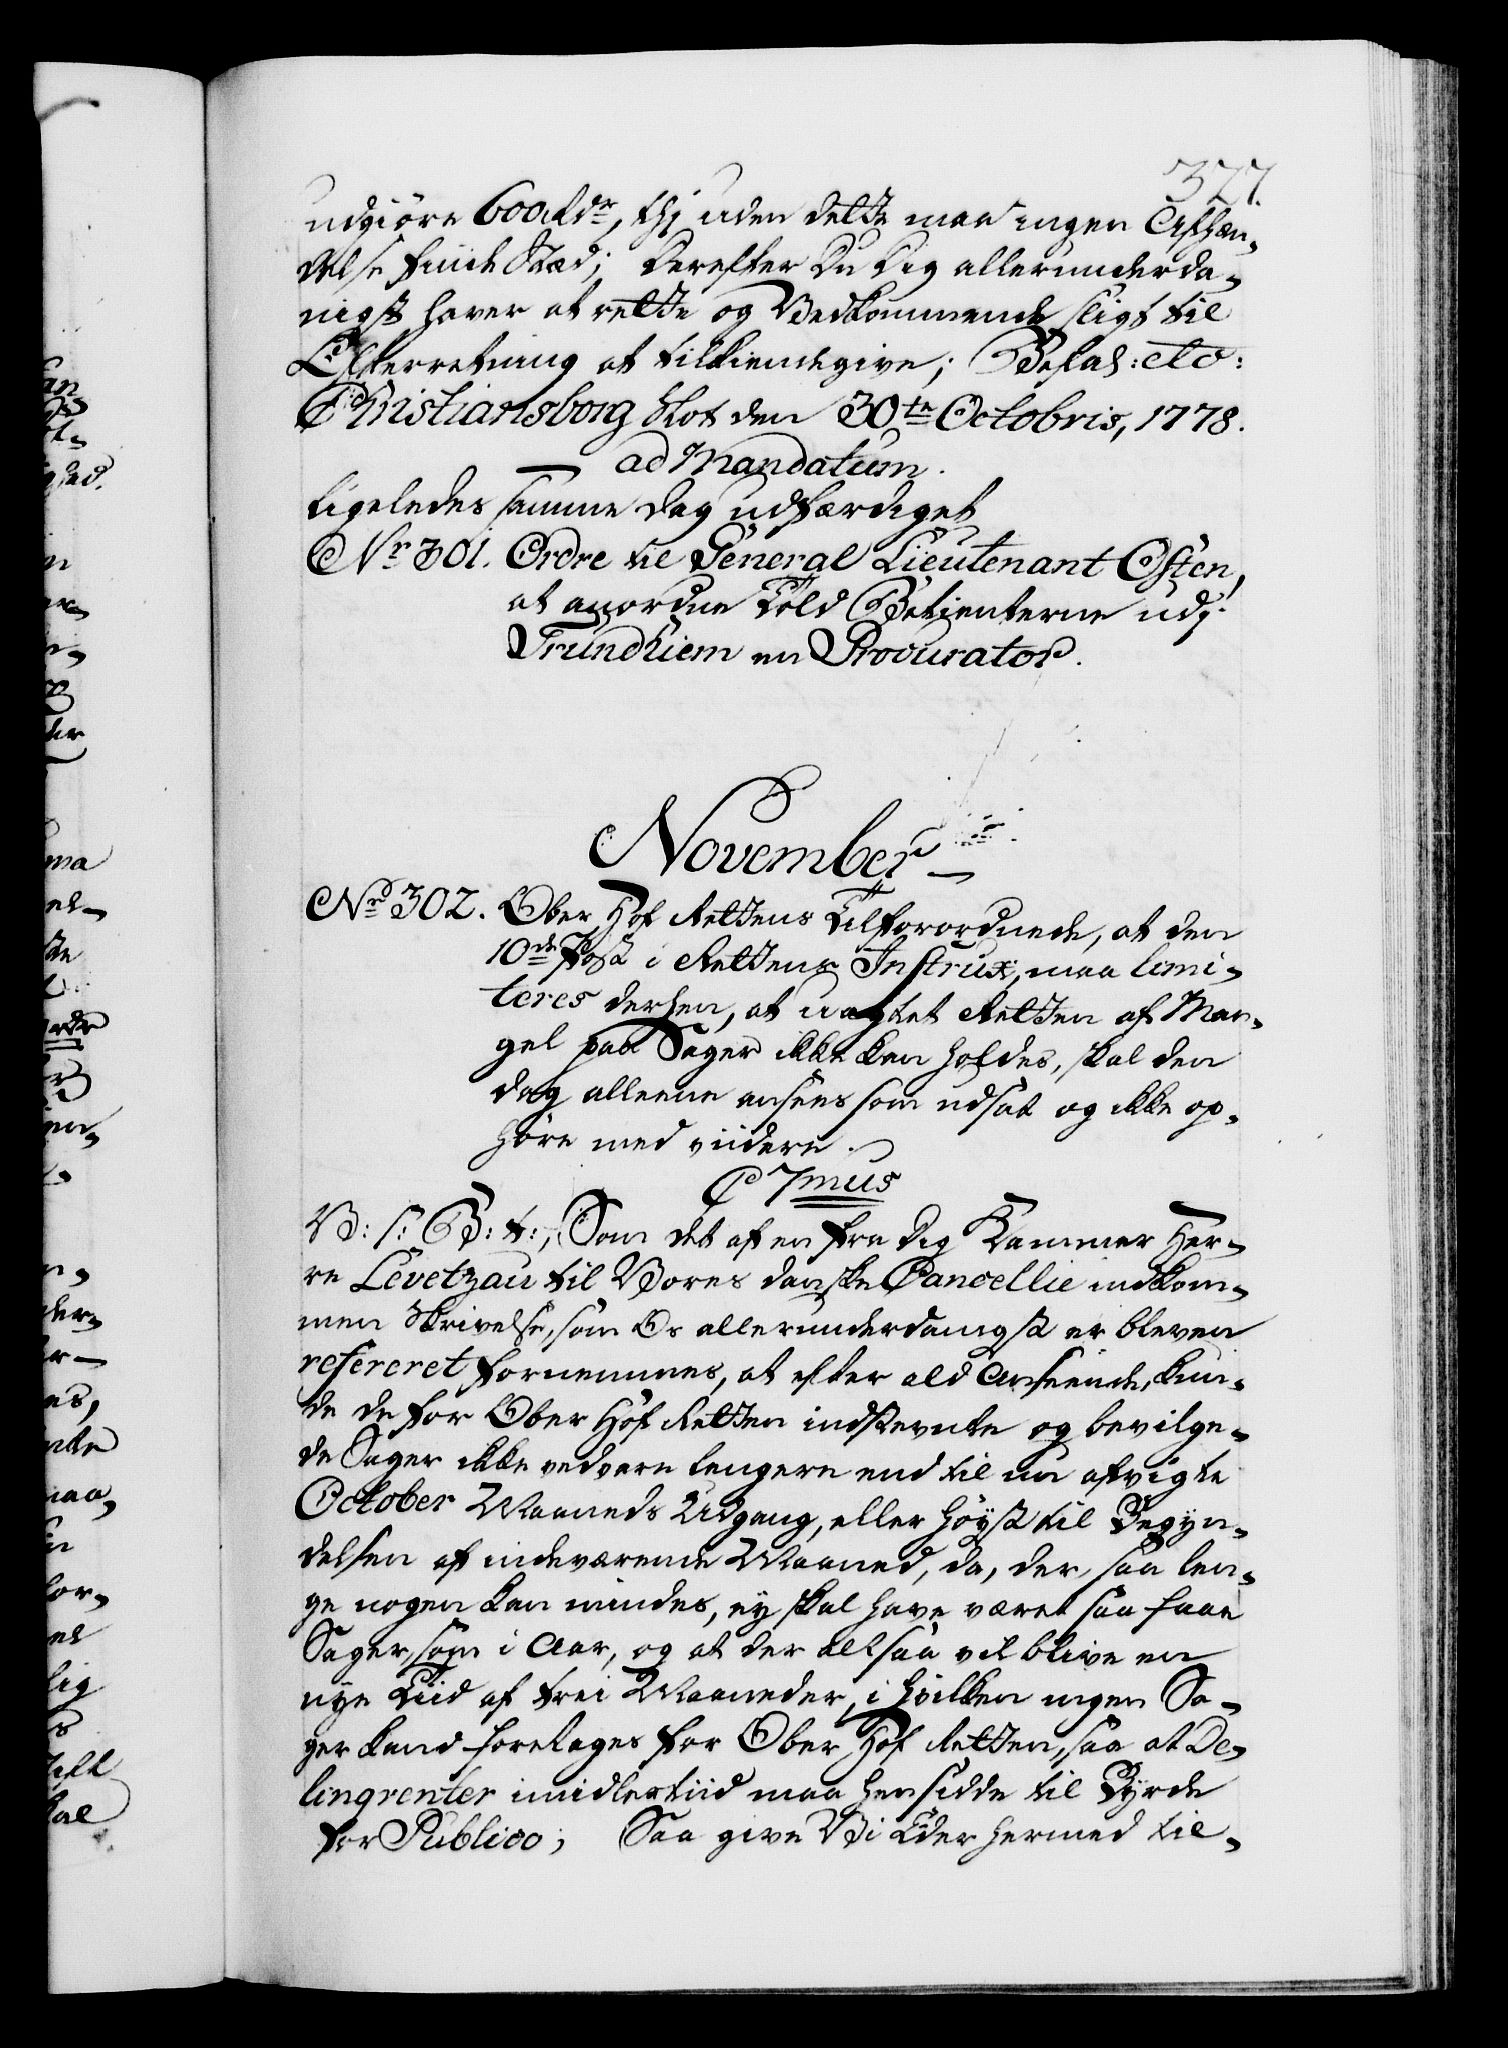 377.
udgiöre 600 Rdr, thj uden dette maa ingen Afhæn-
delse finde Stæd; Derefter Du Dig allerunderda-
nigst haver at rette og Vedkommende sligt til
Efterretning at tilkiendegive; Befal: etc:
Christiansborg Slot den 30te Octobris, 1778.
ad Mandatum.
Ligeledes samme Dag udfærdiget
Nr 301. Ordre til General Lieutenant Osten,
at anordne Told Betienterne udj
Trundhiem en Procurator.
November
Nr 302. Ober Hof Rettens Tilforordnede, at den
10de Post i Rettens Instrux, maa limi-
teres derhen, at uagtet Retten af Man-
gel paa Sager ikke kan holdes, skal den
dog alleene ansees som udsat og ikke op-
höre med viidere.
C 7mus
V: S: G: t:, Som det af en fra Dig Kammer Her-
re Levetzau til Vores danske Cancellie indkom-
men Skrivelse, som Os allerunderdanigst er bleven
refereret fornemmes, at efter ald Anseende, kun-
de de for Ober Hof Retten indstevnte og bevilge-
de Sager ikke vedvare lengere end til nu afvigte
October Maaneds Udgang, eller höyst til Begyn-
delsen af indeværende Maaned, da, der, saa len-
ge nogen kan mindes, ey skal have været saa faae
Sager, som i Aar, og at der altsaa vil blive en
nye Tiid af trei Maaneder, i hvilken ingen Sa-
ger kand foretages for Ober Hof Retten, saa at De-
linqventer imidlertiid maa hensidde til Byrde
for Publico; Saa give Vi Eder hermed til-